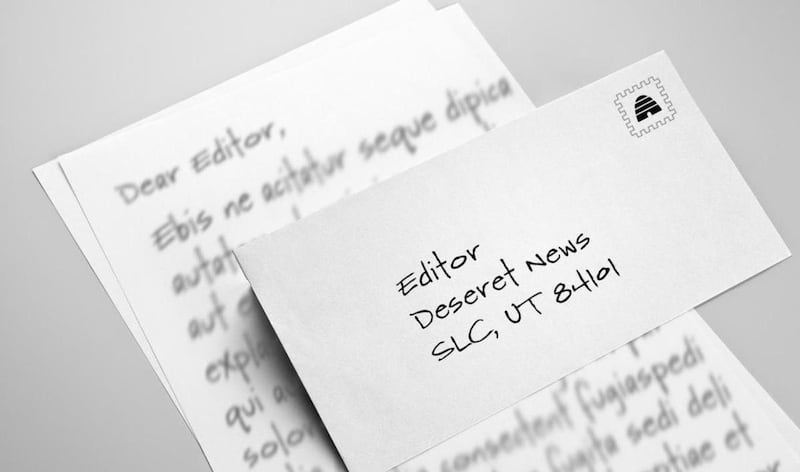 Dear Editor,
Ebis ne acitatur seque dipica
autat
aut
expla
qui
solor
fugiaspedi
fugita sedi deli
et
Editor
Deseret News
SLC, UT 84101